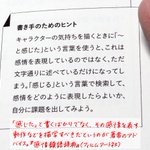 書き手のためのヒント
キャラクターの気持ちを描くときに「〜
と感じた」という言葉を使うと、これは
感情を表現しているのではなく、ただ
文字通りに述べているだけになってし
まう。「感じる」という言葉で検索して、
感情をどのように表現したらよいか、
自分に課題を出してみよう。
"感じた"って書くばかりでなく、その感情を表す
動作などを描写すべきだというのが著者のアド
バイス。『感情類語辞典』(フィルムアート社)